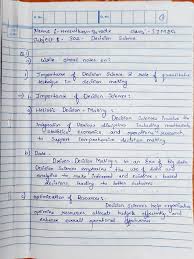 Name :- Class :- I MBA
Subject :- 302 - Decision Science
Q. 1)
Write short notes on :-
1) Importance of Decision Science & role of quantitative technique in decision making.
→ Importance of Decision Science :-
a) Holistic Decision Making :-
Integration of Various disciplines including mathematics, statistics, economics and operations research to support comprehensive decision making
b) Data -
Driven Decision Making : In an Era of big data
Decision Science emphasizes the use of data and
analytics to make informed and evidence - based
decisions, leading to better outcomes.
c) Optimization of Resources :
Decision Science help organization
optimize resources, allocate budgets efficiently and
enhance overall operational effectiveness